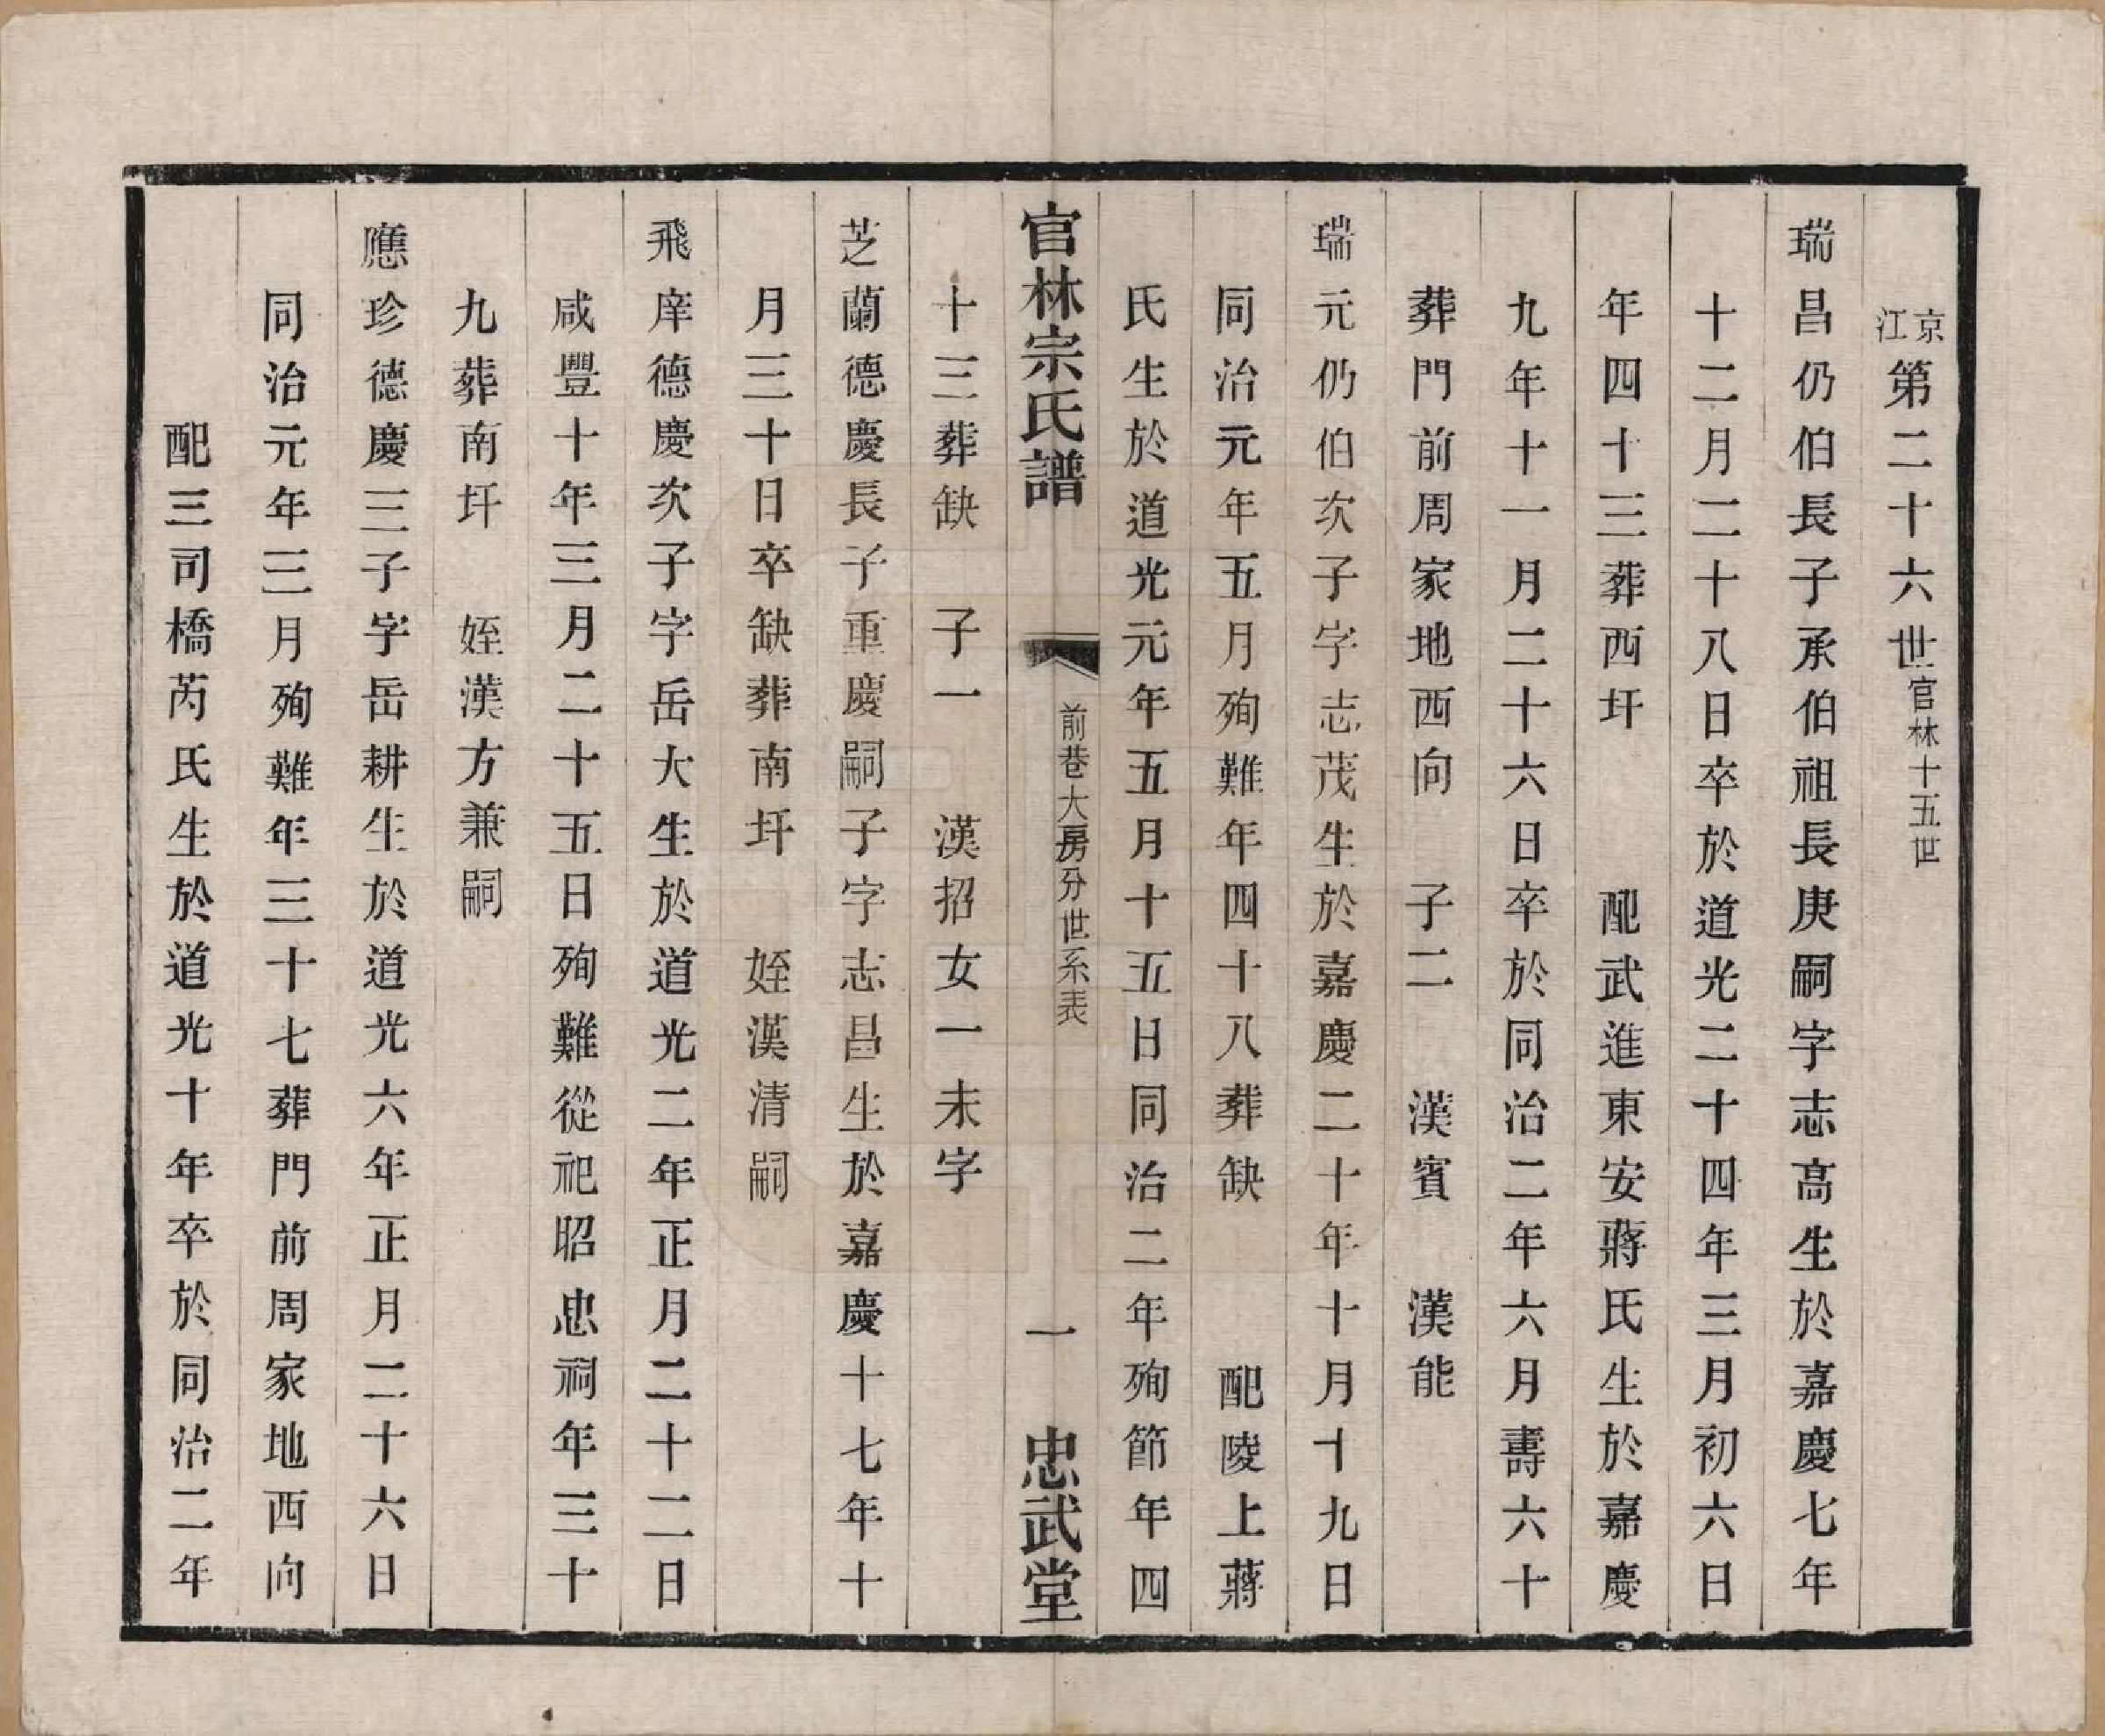 京江第二十六世官林十五世
瑞昌仍伯長子承伯祖長庚嗣字志高生於嘉慶七年
十二月二十八日卒於道光二十四年三月初六日
年四十三葬西圩　配武進東安蔣氏生於嘉慶
九年十一月二十六日卒於同治二年六月壽六十
葬門前周家地西向　子二　漢賓　漢能
瑞元仍伯次子字志茂生於嘉慶二十年十月十九日
同治元年五月殉難年四十八葬缺　配陵上蔣
氏生於道光元年五月十五日同治二年殉節年四
官林宗氏譜　前巷大房分世系表　一　忠武堂
十三葬缺　子一　漢招女一未字
芝蘭德慶長子重慶嗣子字志昌生於嘉慶十七年十
月三十日卒缺葬南圩　姪漢清嗣
飛庠德慶次子字岳大生於道光二年正月二十二日
咸豐十年三月二十五日殉難從祀昭忠祠年三十
九葬南圩　姪漢方兼嗣
應珍德慶三子字岳耕生於道光六年正月二十六日
同治元年三月殉難年三十七葬門前周家地西向
配三司橋芮氏生於道光十年卒於同治二年